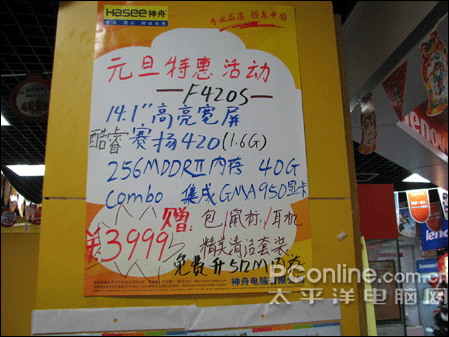 Hasee神舟
专业品质 锁惠中国
元旦特惠活动
—F420S—
14.1"高亮宽屏
酷睿赛扬420(1.6G)
256MDDRII内存 40G
Combo 集成GMA950显卡
赠:包/鼠标/耳机
¥3999
精美清洁套装
免费升512M内存
神舟电脑有限公司
lenovo
PConline.com.cn
太平洋电脑网